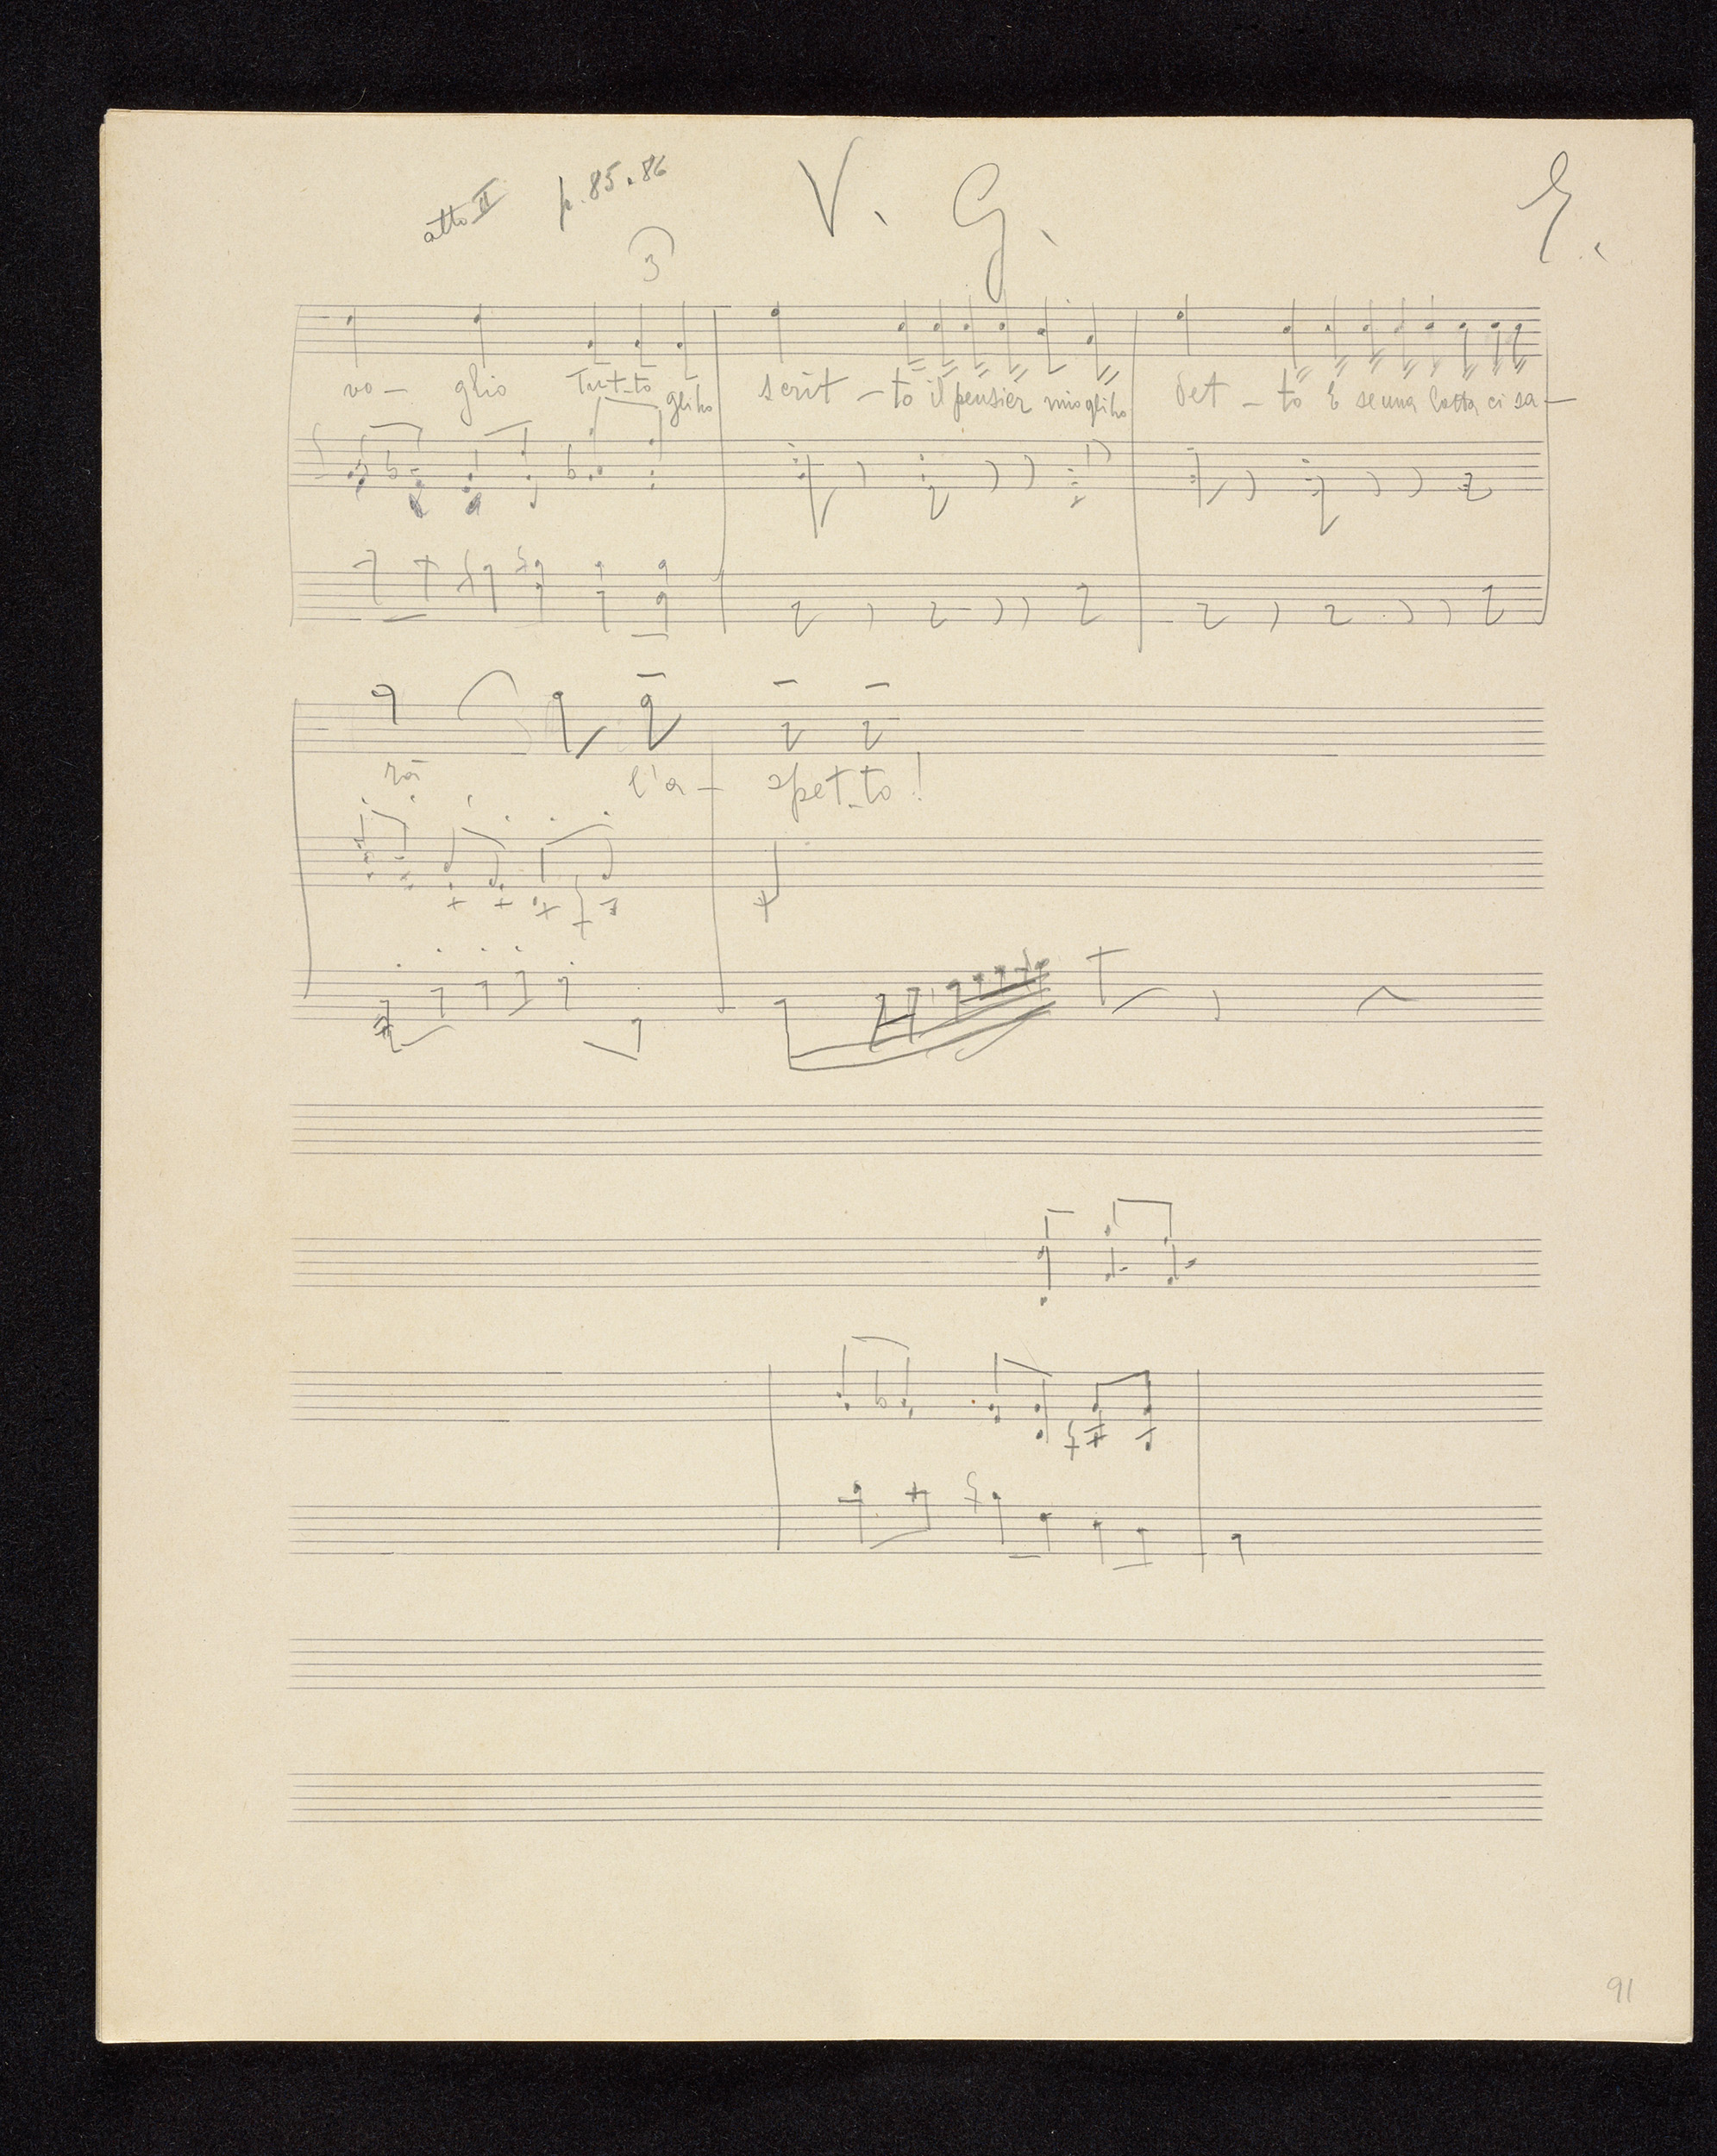 atto II p. 85.86 V. G. E.
3
vo – glio Tut-to gli ho scrit – to il pensier mio gli ho det – to E se una lotta ci sa –
rà l'a – spet-to!
91